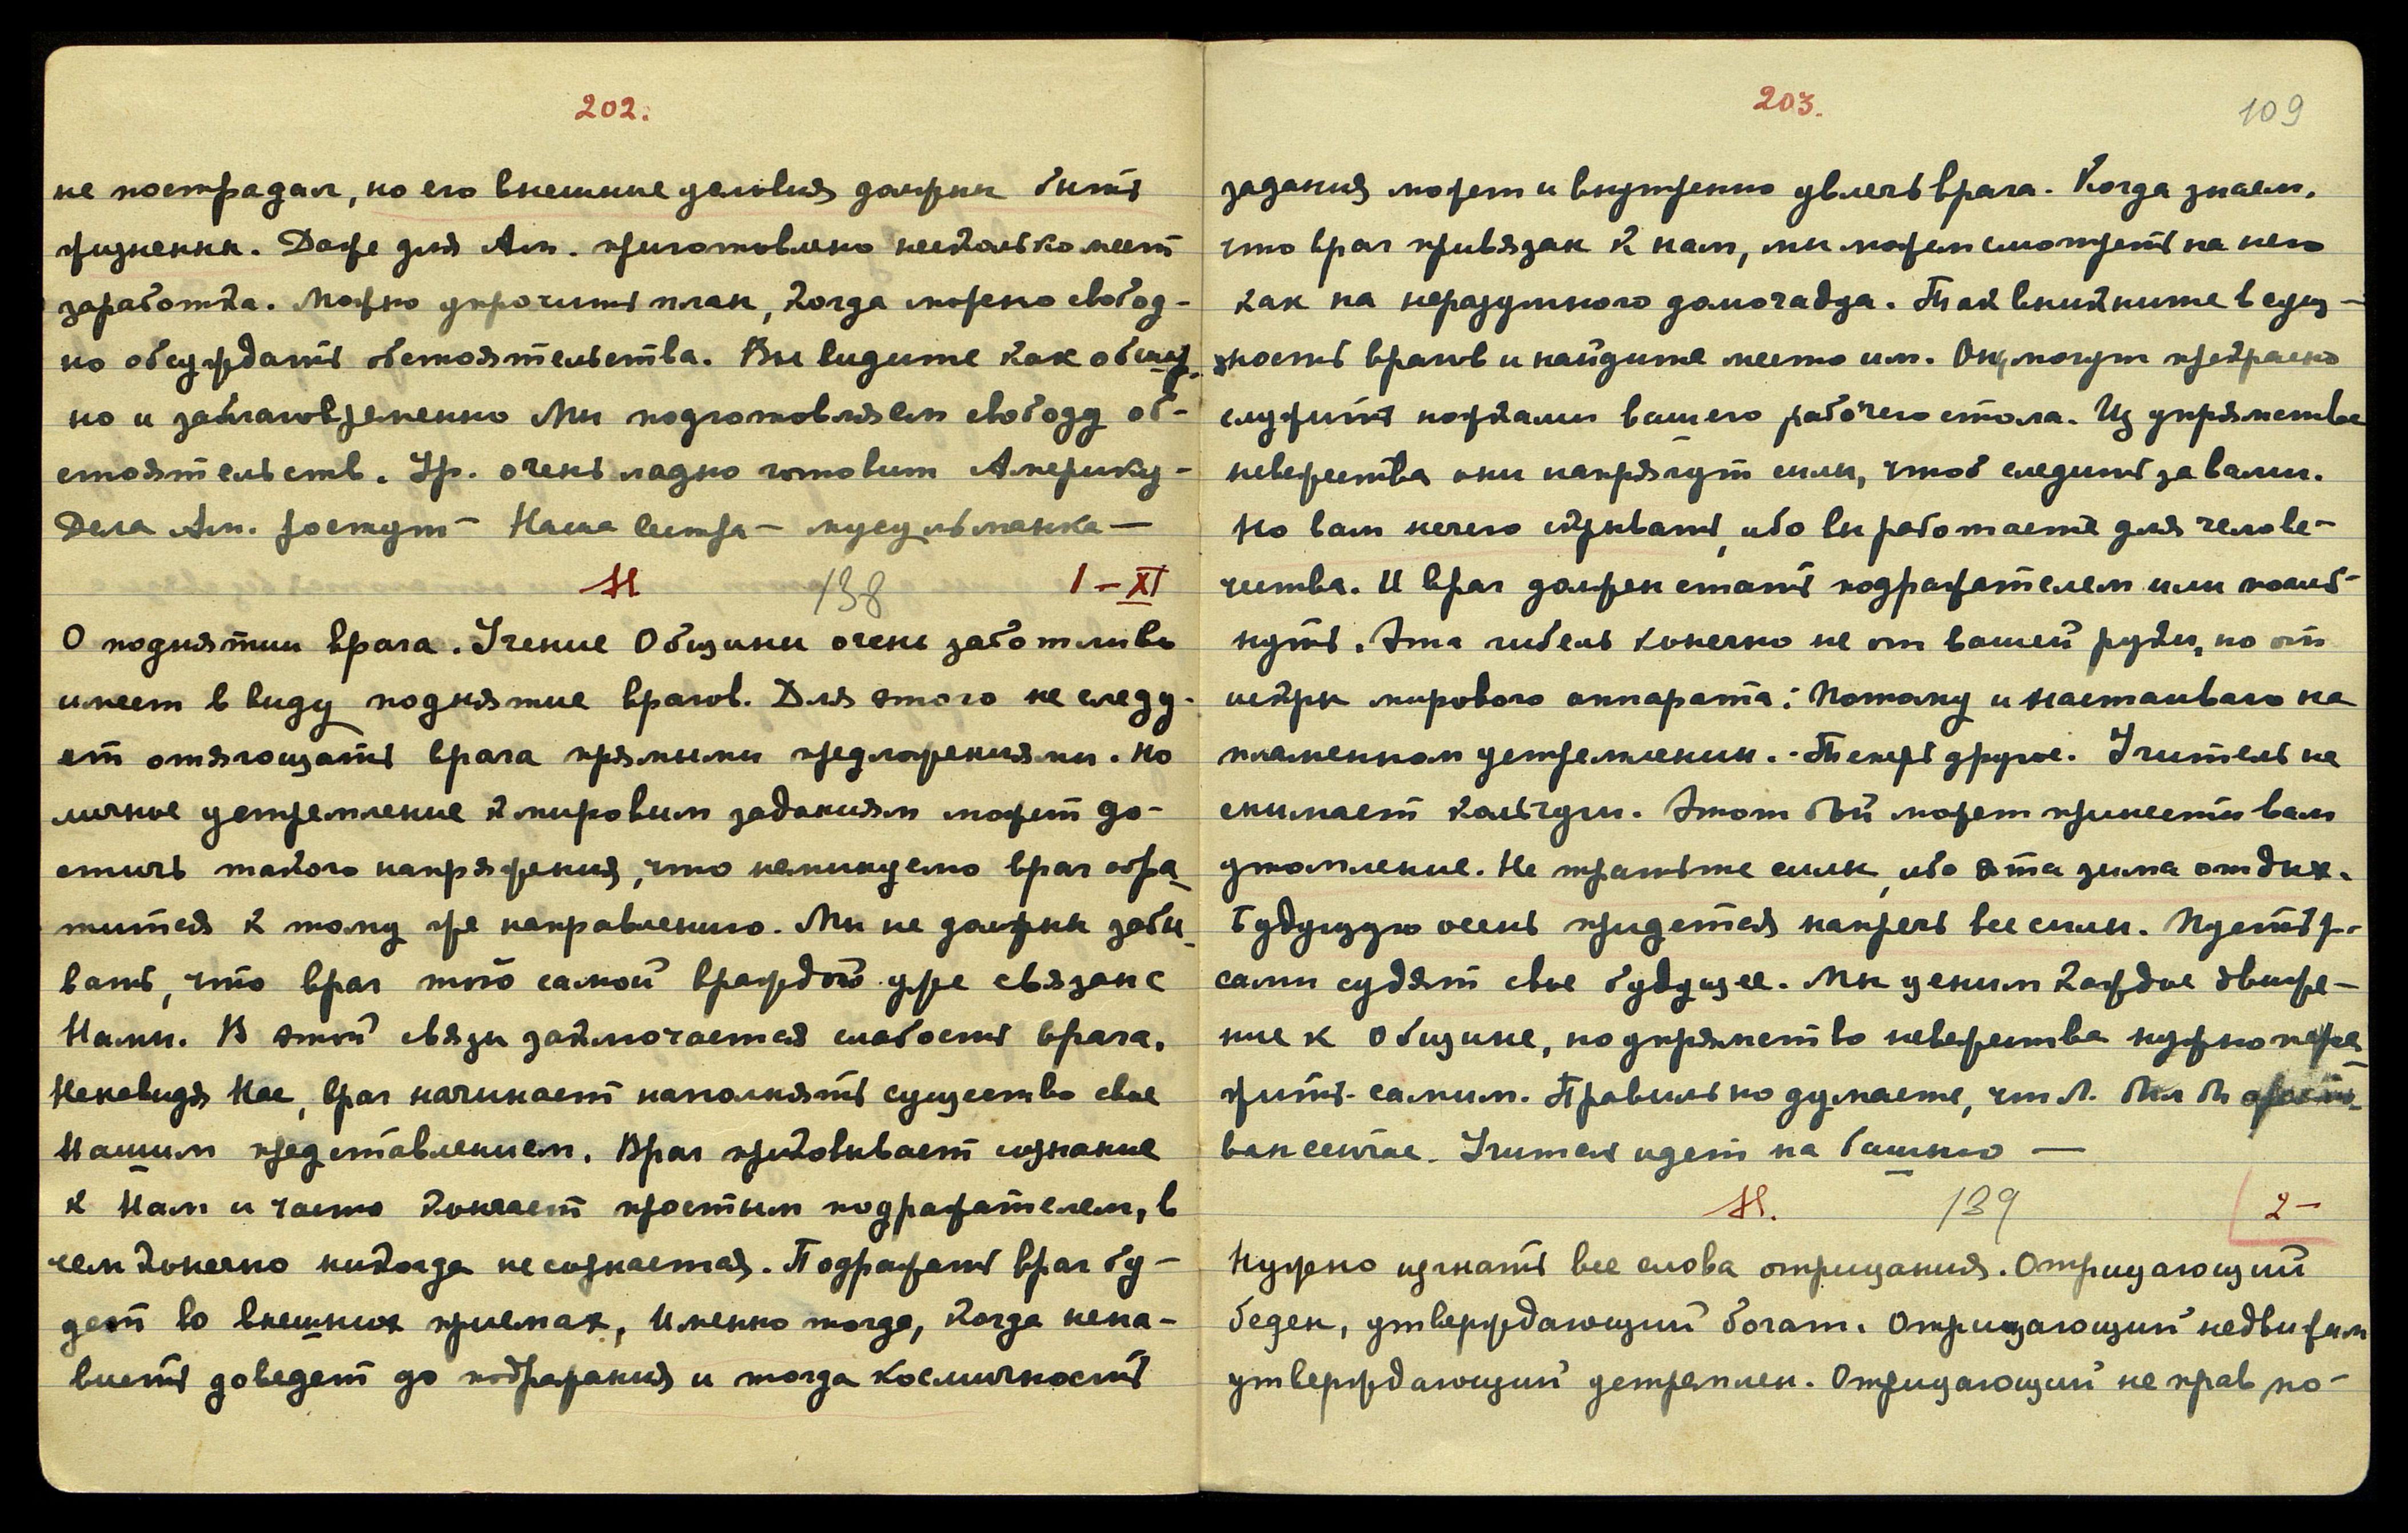 202.
не пострадал, но его внешние условия должны быть
жизненны. Даже для Ам. приготовлено несколько мест
заработка. Можно упрочить план, когда можно свобод-
но обсуждать обстоятельства. Вы видите как
но и заблаговременно Мы подготовляем свободу об-
стоятельств. Ур. очень ладно готовит Америку -
Дела Ам. растут - Наша сестра - мусульманка —
138 1 - XI
О поднятии врага. Учение Общины очень заботливо
имеет в виду поднятие врагов. Для этого не следу-
ет отягощать врага прямыми предложениями. Но
личное устремление к мировым заданиям может до-
стичь такого напряжения, что неминуемо враг обра-
тится к тому же направлению. Мы не должны забы-
вать, что враг той самой враждой уже связан с
Нами. В этой связи заключается слабость врага.
Ненавидя Нас, враг начинает наполнять существо свое
Нашим представлением. Враг приковывает сознание
к Нам и часто кончает простым подражателем, в
чем конечно никогда не сознается. Подражать враг бу-
дет во внешних приемах, Именно тогда, когда нена-
висть доведет до подражания и тогда космичность
203.
109
задания может и внутренно увлечь врага. Когда знаем,
что враг привязан к нам, мы можем смотреть на него
как на неразумного домочадца. Так вникните в сущ-
ность врагов и найдите место им. Они могут прекрасно
служить ножками вашего рабочего стола. Из упрямства
невежества они напрягут силы, чтоб следить за вами.
Но вам нечего скрывать, ибо вы работаете для челове-
чества. И враг должен стать подражателем или погиб-
нуть. Эта гибель конечно не от вашей руки, но от
искры мирового аппарата: Потому и настаиваю на
пламенном устремлении. - Теперь другое. Учитель не
снимает кольчуги. Этот бой может принести вам
утомление. Не тратьте силы, ибо эта зима отдых.
Будущую осень придется напречь все силы. Пусть р-
сами судят свое будущее. Мы ценим каждое движе-
ние к Общине, но упрямство невежества нужно пере-
жить самим. Правильно думаете, что Л. был бы аресто-
ван сейчас. Учитель идет на башню —
139 2 -
Нужно изгнать все слова отрицания. Отрицающий
беден, утверждающий богат. Отрицающий недвижим
утверждающий устремлен. Отрицающий не прав по-